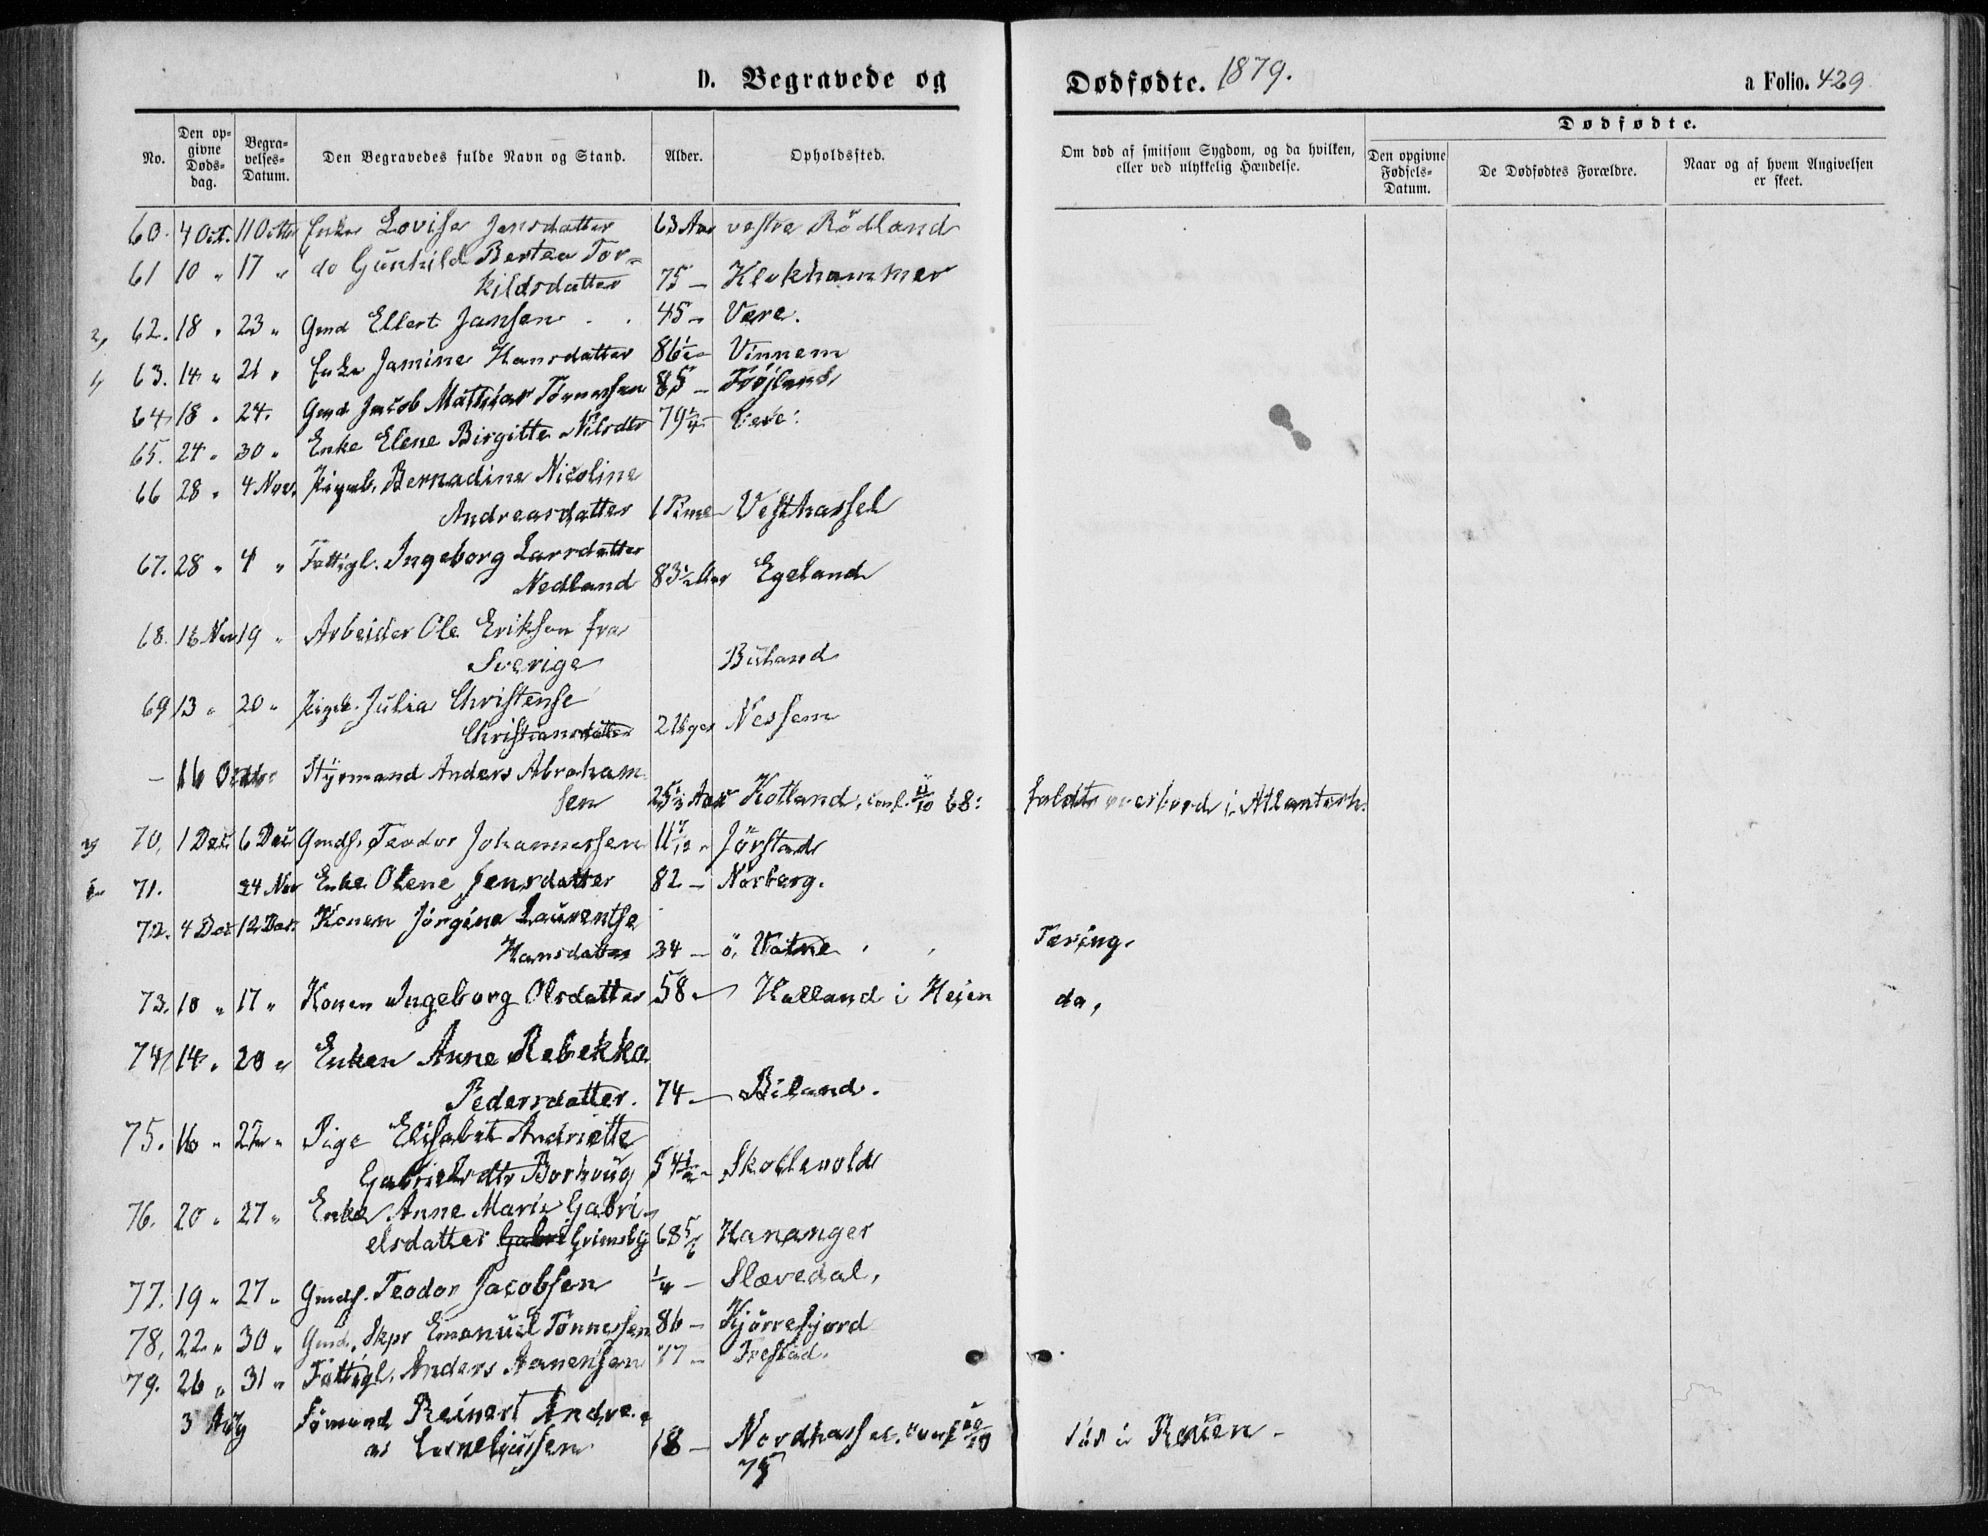 D. Begravede og Dødfødte. 1879. a Folio. 429
No. Den opgivne Dødsdag. Begravelses-Datum. Den Begravedes fulde Navn og Stand. Alder. Opholdssted. Om død af smitsom Sygdom, og da hvilken, eller ved ulykkelig Hændelse. Dødfødte. Den opgivne Fødsels-Datum. De Dødfødtes Forældre. Naar og af hvem Angivelsen er skeet.
60. 4 Oct. 11 Octbr Enke Lovise Jensdatter 63 Aar vestre Rödland
61 10 " 17 " do Gunhild Bertea Tor-
kildsdatter 75 – Klokhammer
2, 62. 18 " 23 " Gmd Ellert Jansen 45 – Vere.
1, 63. 14 " 21 " Enke Jamine Hansdatter 86½ – Vinnem
64, 18 " 24. Gmd Jacob Mathias Tönnessen 85 – Tröjland
65. 24 " 30 " Enke Elene Birgitte Nilsdtr 79¼ – Vere.
66 28 " 4 Nov. Pigeb. Bernadine Nicoline
Andreasdatter 1 Time Vesthassel
67. 28 " 4 " Fattigl. Ingeborg Larsdatter
Nedland 83½ Aar Egeland
68. 13 Nov 19 " Arbeider Ole Eriksen fra
Sverige Buland
69 13 " 20 " Pigeb. Julia Christense
Christiansdatter 2 Uger Nessem
– 16 Octbr Styrmand Anders Abraham-
sen 25⅓ Aar Kolland, conf. 11/10 68: faldt overbord i Atlanterh.
2, 70, 1 Dec 6 Dec Gmds. Teodor Johannessen 11 7/12 " Jörstad
1 71. 24 Nov Enke Olene Jensdatter 82 – Norberg.
72. 4 Dec 12 Dec. Konen Jörgine Laurentse
Hansdatter 34 – ö. Vatne Tæring.
73. 10 " 17 " Konen Ingeborg Olsdatter 58 – Halland i Heien do,
74, 14 " 20 " Enken Anne Rebekka
Pedersdatter. 74 – Biland.
75. 16 " 22 " Pige Elisabet Andriette
Gabrielsdtr Borhaug 54½ – Skollevold
76. 20 " 27 " Enke Anne Marie Gabri-
elsdatter Gabri Grimsby 68 5/6 Hananger
77. 19 " 27 " Gmds. Teodor Jacobsen ¼ – Slævedal,
78, 22 " 30 " Gmd. Skpr Emanuel Tönnessen 86 – Kjörrefjord
79. 26 " 31 " Fattigl. Anders Aanensen 77 – Frestad.
3 Aug Sömand Reinert Andre-
as Corneliussen 18 – Nordhassel. conf /10 i Rouen –
75